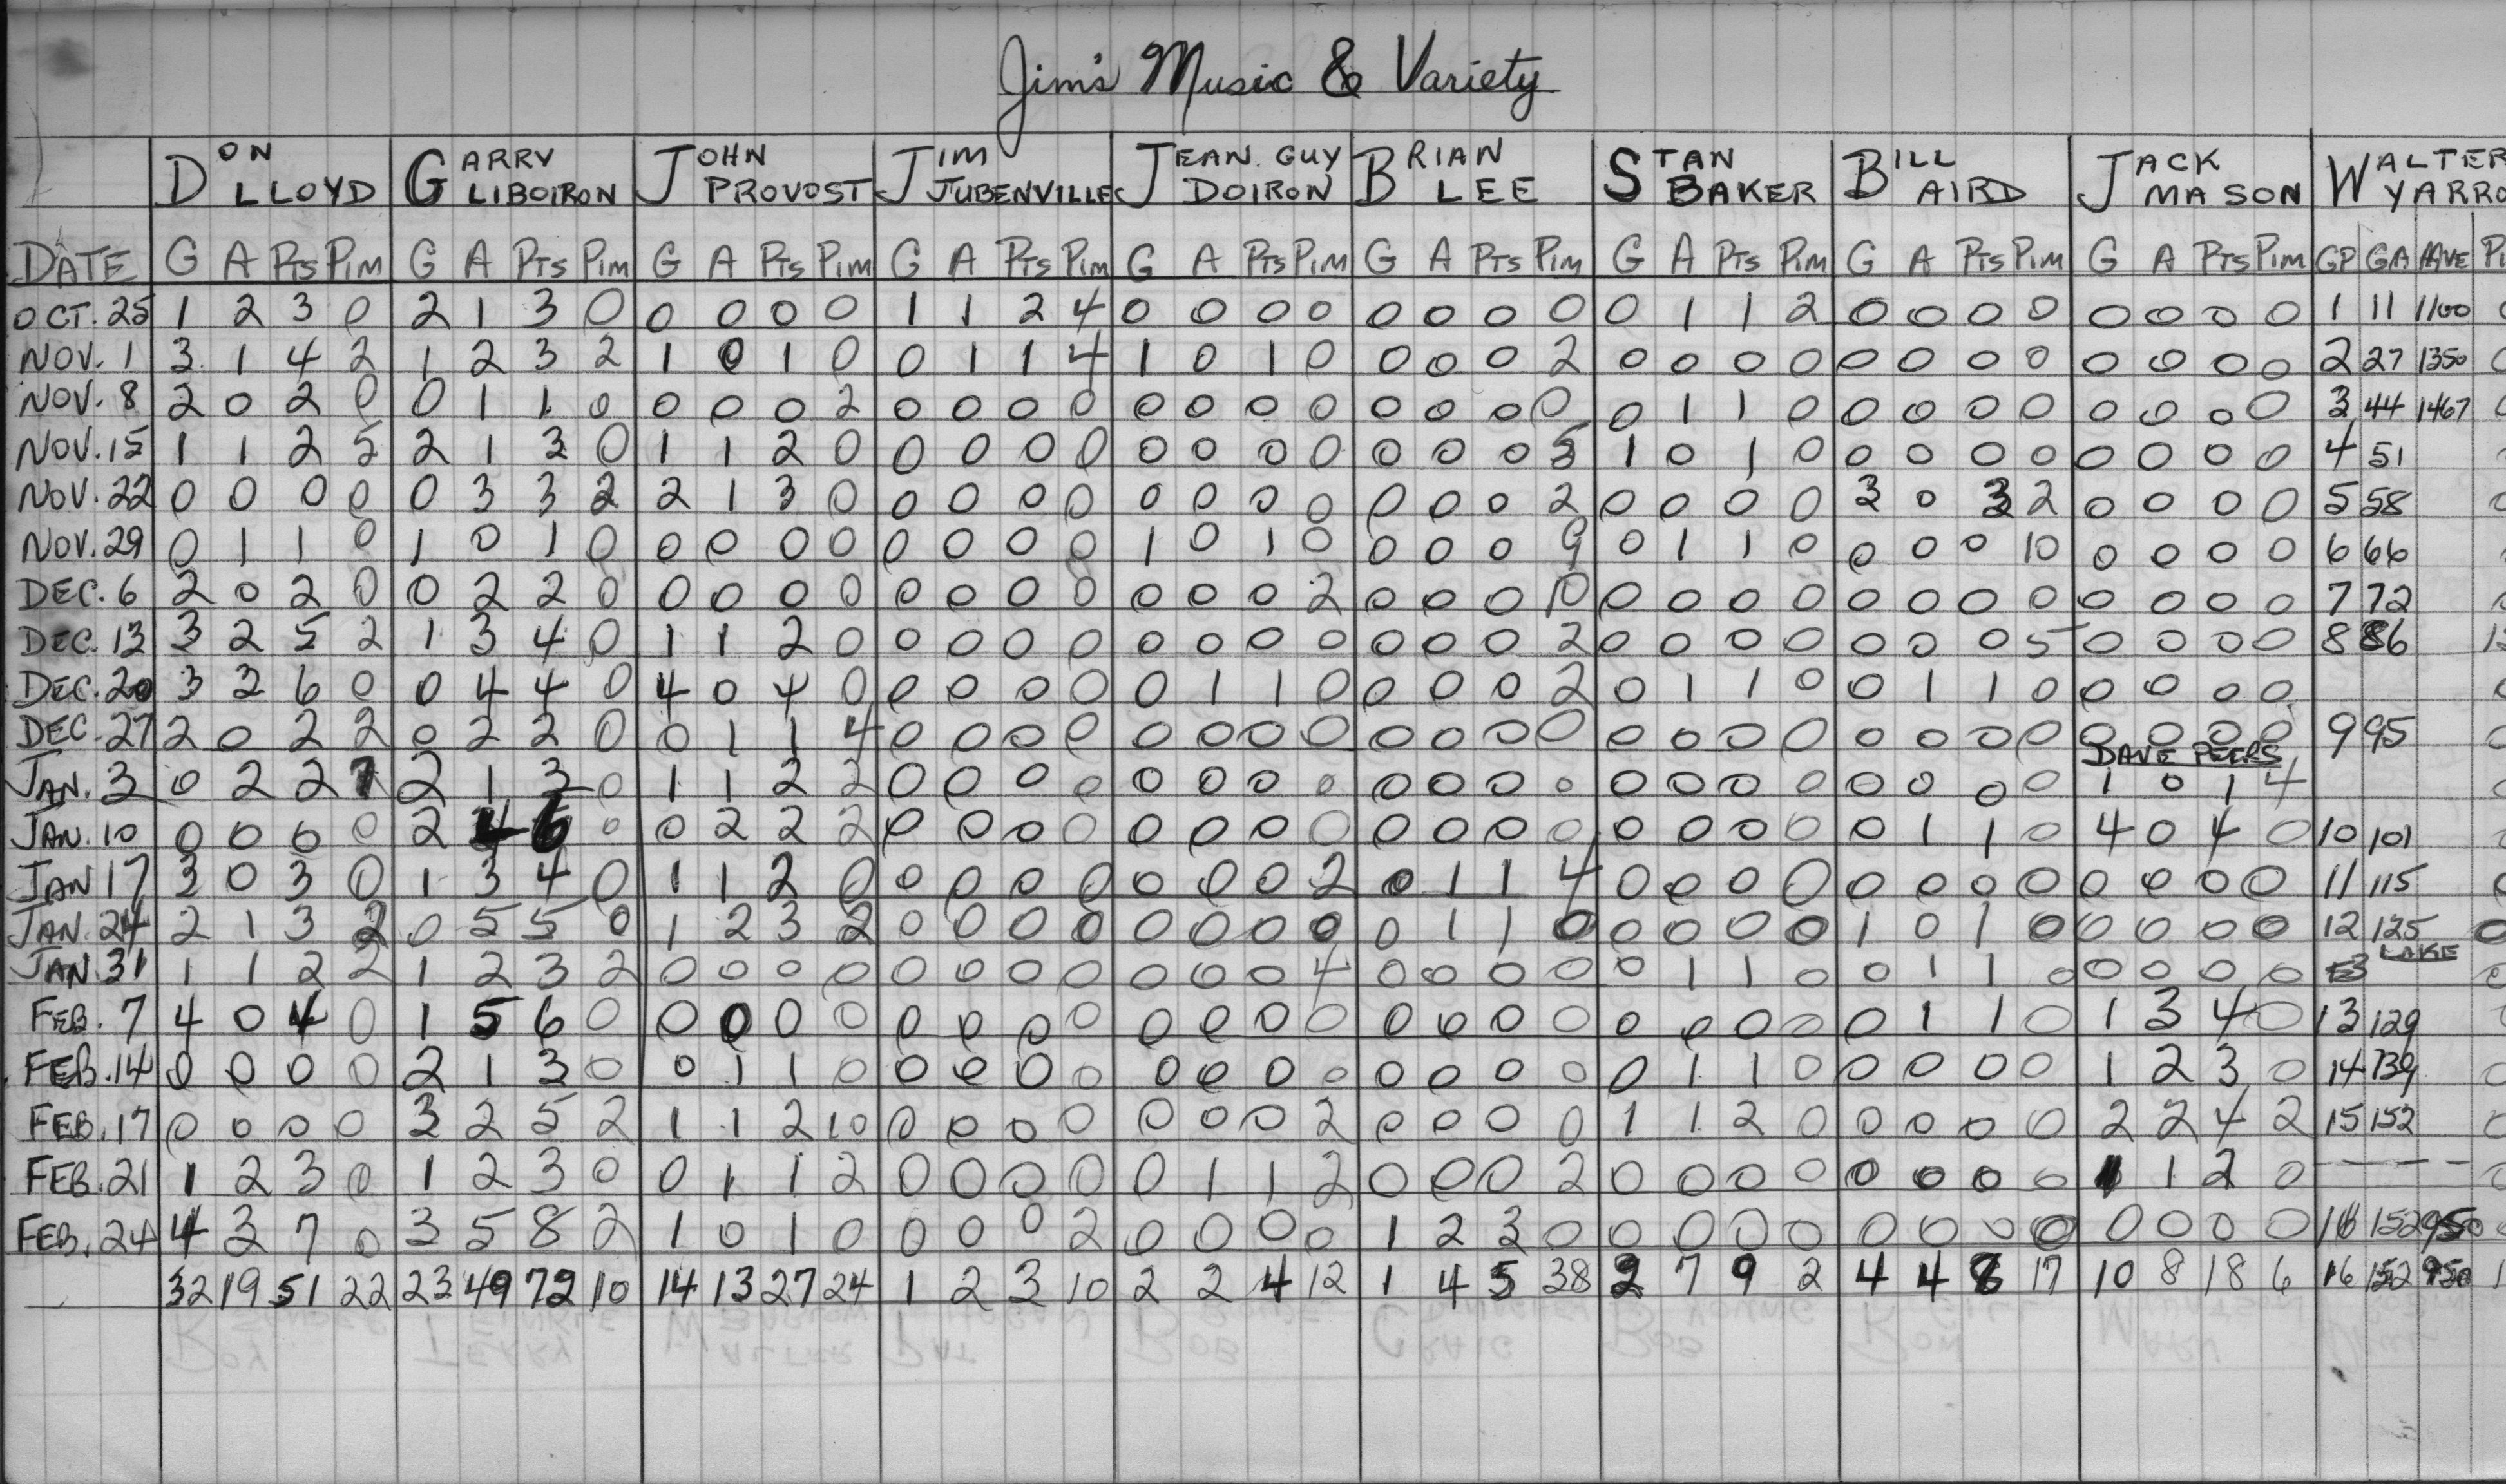 Jim's Music & Variety
DON LLOYD GARRY LIBOIRON JOHN PROVOST JIM JUBENVILLE JEAN. GUY DOIRON BRIAN LEE STAN BAKER BILL AIRD JACK MASON WALTER YARRO
DATE G A PTS PIM G A PTS PIM G A PTS PIM G A PTS PIM G A PTS PIM G A PTS PIM G A PTS PIM G A PTS PIM G A PTS PIM GP GA AVE
OCT. 25 1 2 3 0 2 1 3 0 0 0 0 0 1 1 2 4 0 0 0 0 0 0 0 0 0 1 1 2 0 0 0 0 0 0 0 0 1 11 1100
NOV. 1 3 1 4 2 1 2 3 2 1 0 1 0 0 1 1 4 1 0 1 0 0 0 0 2 0 0 0 0 0 0 0 0 0 0 0 0 2 27 1350
NOV. 8 2 0 2 0 0 1 1 0 0 0 0 2 0 0 0 0 0 0 0 0 0 0 0 0 0 1 1 0 0 0 0 0 0 0 0 0 3 44 1467
NOV. 15 1 1 2 5 2 1 3 0 1 1 2 0 0 0 0 0 0 0 0 0 0 0 0 5 1 0 1 0 0 0 0 0 0 0 0 0 4 51
NOV. 22 0 0 0 0 0 3 3 2 2 1 3 0 0 0 0 0 0 0 0 0 0 0 0 2 0 0 0 0 3 0 3 2 0 0 0 0 5 58
NOV. 29 0 1 1 0 1 0 1 0 0 0 0 0 0 0 0 0 1 0 1 0 0 0 0 9 0 1 1 0 0 0 0 10 0 0 0 0 6 66
DEC. 6 2 0 2 0 0 2 2 0 0 0 0 0 0 0 0 0 0 0 0 2 0 0 0 10 0 0 0 0 0 0 0 0 0 0 0 0 7 72
DEC. 13 3 2 5 2 1 3 4 0 1 1 2 0 0 0 0 0 0 0 0 0 0 0 0 2 0 0 0 0 0 0 0 5 0 0 0 0 8 86
DEC. 20 3 3 6 0 0 4 4 0 4 0 4 0 0 0 0 0 0 1 1 0 0 0 0 2 0 1 1 0 0 1 1 0 0 0 0 0
DEC. 27 2 0 2 2 0 2 2 0 0 1 1 4 0 0 0 0 0 0 0 0 0 0 0 0 0 0 0 0 0 0 0 0 0 0 0 0 9 95
DAVE PEERS
JAN. 3 0 2 2 7 2 1 3 0 1 1 2 2 0 0 0 0 0 0 0 0 0 0 0 0 0 0 0 0 0 0 0 0 1 0 1 4
JAN. 10 0 0 0 0 2 4 6 0 0 2 2 2 0 0 0 0 0 0 0 0 0 0 0 0 0 0 0 0 0 1 1 0 4 0 4 0 10 101
JAN 17 3 0 3 0 1 3 4 0 1 1 2 0 0 0 0 0 0 0 0 2 0 1 1 4 0 0 0 0 0 0 0 0 0 0 0 0 11 115
JAN. 24 2 1 3 2 0 5 5 0 1 2 3 2 0 0 0 0 0 0 0 0 0 1 1 0 0 0 0 0 1 0 1 0 0 0 0 0 12 125 0
JAN. 31 1 1 2 2 1 2 3 2 0 0 0 0 0 0 0 0 0 0 0 4 0 0 0 0 0 1 1 0 0 1 1 0 0 0 0 0 LAKE
FEB. 7 4 0 4 0 1 5 6 0 0 0 0 0 0 0 0 0 0 0 0 0 0 0 0 0 0 0 0 0 0 1 1 0 1 3 4 0 13 129
FEB. 14 0 0 0 0 2 1 3 0 0 1 1 0 0 0 0 0 0 0 0 0 0 0 0 0 0 1 1 0 0 0 0 0 1 2 3 0 14 139
FEB. 17 0 0 0 0 3 2 5 2 1 1 2 10 0 0 0 0 0 0 0 2 0 0 0 0 1 1 2 0 0 0 0 0 2 2 4 2 15 152
FEB. 21 1 2 3 0 1 2 3 0 0 1 1 2 0 0 0 0 0 1 1 2 0 0 0 2 0 0 0 0 0 0 0 0 1 1 2 0 — — — —
FEB. 24 4 3 7 0 3 5 8 2 1 0 1 0 0 0 0 2 0 0 0 0 1 2 3 0 0 0 0 0 0 0 0 0 0 0 0 0 16 152 950
32 19 51 22 23 49 72 10 14 13 27 24 1 2 3 10 2 2 4 12 1 4 5 38 2 7 9 2 4 4 8 17 10 8 18 6 16 152 950